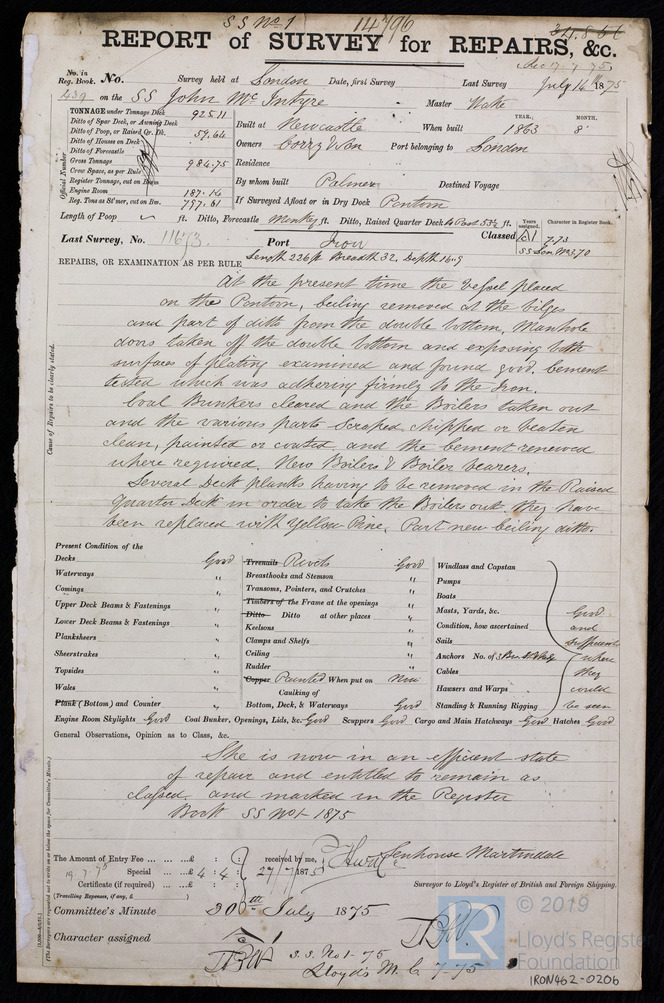 SS No 1 14796 34866
REPORT of SURVEY for REPAIRS, &c.
Rec 17.7.75
No. in Reg. Book. No. Survey held at London Date, first Survey Last Survey July 16th 1875
439 on the SS John McIntyre Master Wake
TONNAGE under Tonnage Deck 925.11
Ditto of Spar Deck, or Awning Deck
Ditto of Poop, or Raised Qr. Dk. 59.64
Ditto of Houses on Deck
Ditto of Forecastle
Gross Tonnage 984.75
Gross Space, as per Rule
Register Tonnage, cut on Beam
Engine Room 187.14
Reg. Tons as St'mer, cut on Bm. 797.61
Official Number
Built at Newcastle When built YEAR. 1863 MONTH. 8
Owners Port belonging to London
Residence
By whom built Palmer Destined Voyage
If Surveyed Afloat or in Dry Dock Pontoon
Length of Poop ft. Ditto, Forecastle Monkey ft. Ditto, Raised Quarter Deck & Poop 53½ ft.
Years assigned. Character in Register Book.
Last Survey, No. 11673. Port Iron Classed A1 7.73
SS Lon No3.70
Length 226 ft Breadth 32. Depth 16.9
REPAIRS, OR EXAMINATION AS PER RULE
Cause of Repairs to be clearly stated.
At the present time the Vessel placed
on the Pontoon, Ceiling removed at the bilges
and part of ditto from the double bottom, Manhole
doors taken off the double bottom and exposing both
surfaces of plating examined and found good. Cement
tested which was adhering firmly to the Iron.
Coal Bunkers cleared and the Boilers taken out
and the various parts scraped, chipped or beaten
clean, painted or coated and the cement renewed
where required. New Boilers & Boiler bearers.
Several Deck planks having to be removed in the Raised
Quarter Deck in order to take the Boilers out they have
been replaced with Yellow Pine. Part new Ceiling ditto.
Present Condition of the
Decks Good
Waterways "
Comings "
Upper Deck Beams & Fastenings "
Lower Deck Beams & Fastenings "
Planksheers "
Sheerstrakes "
Topsides "
Wales "
Plank (Bottom) and Counter "
Treenails Rivets Good
Breasthooks and Stemson "
Transoms, Pointers, and Crutches "
Timbers of the Frame at the openings "
Ditto Ditto at other places "
Keelsons "
Clamps and Shelfs "
Ceiling "
Rudder "
Copper Painted When put on Now
Caulking of
Bottom, Deck, & Waterways Good
Windlass and Capstan
Pumps
Boats
Masts, Yards, &c. Good
Condition, how ascertained and
Sails sufficient
Anchors No. of where
Cables they
Hawsers and Warps could
Standing & Running Rigging be seen
Engine Room Skylights Good Coal Bunker, Openings, Lids, &c. Good Scuppers Good Cargo and Main Hatchways Good Hatches Good
General Observations, Opinion as to Class, &c.
She is now in an efficient state
of repair and entitled to remain as
classed and marked in the Register
Book SS No 1 1875
(The Surveyors are requested not to write on or below the space for Committee's Minute.)
The Amount of Entry Fee ... ... ...£ : : received by me,
19.7.75 Special ... ...£ 4 : 4 : 27/7/1875
Certificate (if required) ... ...£ : :
(Travelling Expenses, if any, £ )
Senhouse Martindale
Surveyor to Lloyd's Register of British and Foreign Shipping.
Committee's Minute 20th July 1875
Character assigned A1
S.S. No 1-75
Lloyd's M.C. 7-75
© 2019
LR Lloyd's Register Foundation
IRON462-0206